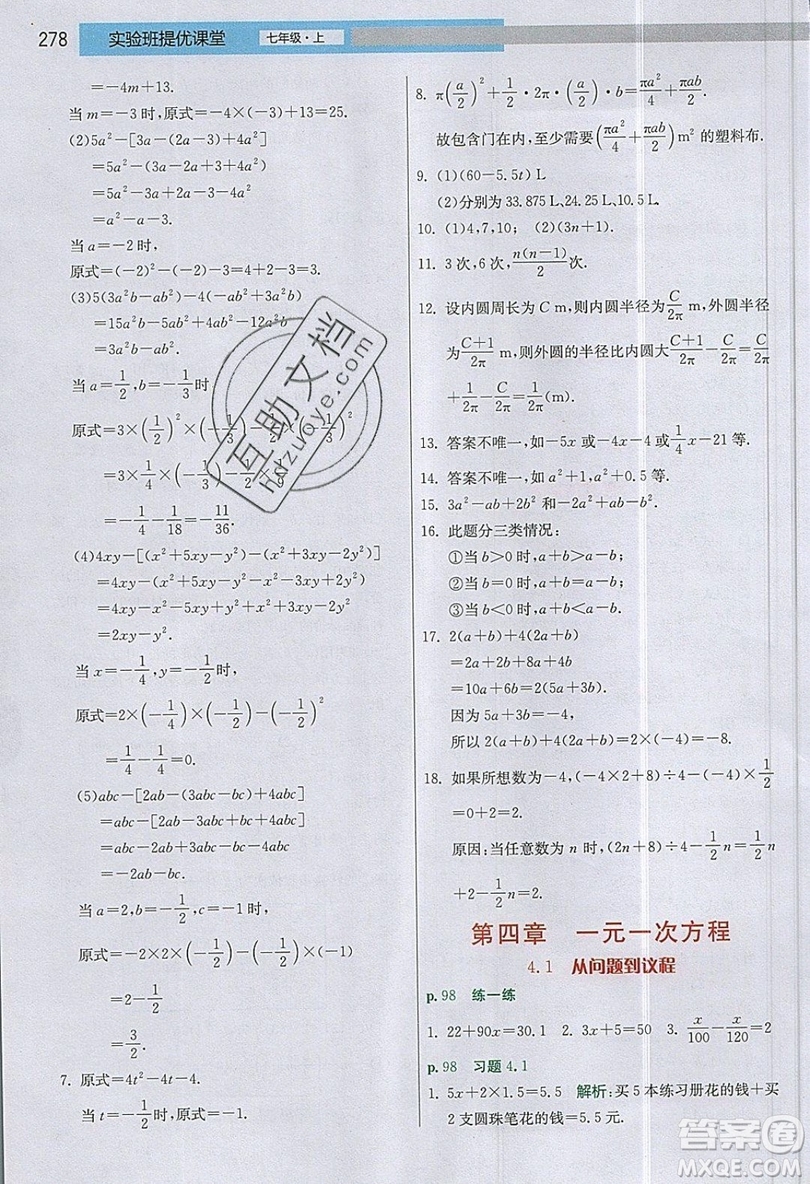 278 实验班提优课堂 七年级·上
=-4m+13.
当 m=-3时,原式=-4×(-3)+13=25.
(2)5a²-[3a-(2a-3)+4a²]
=5a²-(3a-2a+3+4a²)
=5a²-3a+2a-3-4a²
=a²-a-3.
当 a=-2 时,
原式=(-2)²-(-2)-3=3.
(3)5(3a²b-ab²)-4(-ab²+3a²b)
=15a²b-5ab²+4ab²-12a²b
=3a²b-ab².
当 a=1/2,b=-1/3时
=-1/4-1/18=-11/36.
(4)4xy-[(x²+5xy-y²)-(x²+3xy-2y²)]
=4xy-(x²+5xy-y²-x²-3xy+2y²)
=4xy-x²-5xy+y²+x²+3xy-2y²
=2xy-y².
当 x=-1/4,y=-1/2时,
原式=2×(-1/4)×(-1/2)-(-1/2)²
=1/4-1/4=0.
(5)abc-[2ab-(3abc-bc)+4abc]
=abc-[2ab-3abc+bc+4abc]
=abc-2ab+3abc-bc-4abc
=-2ab-bc.
当 a=2,b=-1/2,c=-1时,
=2-1/2
=3/2.
7. 原式=4t²-t-4.
当 t=-1/2时,原式=4×(-1/2)²-(-1/2)-4=-5/2.
8. π(a/2)²+1/2·2π·(a/2)·b=πa²/4+πab/2.
故包含门在内,至少需要(πa²/4+πab/2)m² 的塑料布.
9. (1)(60-5.5t) L
(2)分别为 33.875 L,24.25 L,10.5 L.
10. (1)4,7,10; (2)(3n+1).
11. 3 次,6 次,n(n-1)/2次.
12. 设内圆周长为 C m,则内圆半径为C/2π m,外圆半径
为(C+1)/2π m,则外圆的半径比内圆大(C+1)/2π-C/2π=C/2π
+1/2π-C/2π=1/2π(m).
13. 答案不唯一,如-5x 或-4x 或3/4x-21 等.
14. 答案不唯一,如 a²+1,a⁴+1 等.
15. 3a²-ab+2b²+ab-b².
16. 此题分三类情况:
①当 b>0 时,a+b>a>a-b;
②当 b=0 时,a+b=a=a-b;
③当 b<0 时,a+b<a<a-b.
17. 2(a+b)+4(2a+b)
=2a+2b+8a+4b
=10a+6b=2(5a+3b).
因为 5a+3b=-4,
所以 2(a+b)+4(2a+b)=-8.
18. 如果所想数为-4,(-4×2+8)÷4-(-4)×1/2
=0+2=2.
原因:当任意数为 n 时,(2n+8)÷4-1/2n=1/2n
+2-1/2n=2.
第四章 一元一次方程
4.1 从问题到议程
p.98 练一练
1. 22+90x=30.1 2. 3x+5=50 3. x/100-x/120=2
p.98 习题 4.1
1. 5x+2×1.5=5.5 解析:买 5 本练习册花的钱+买
2 支圆珠笔花的钱=5.5 元.
互助文档
Hdzuoye.com
答案圈
MXQE.COM